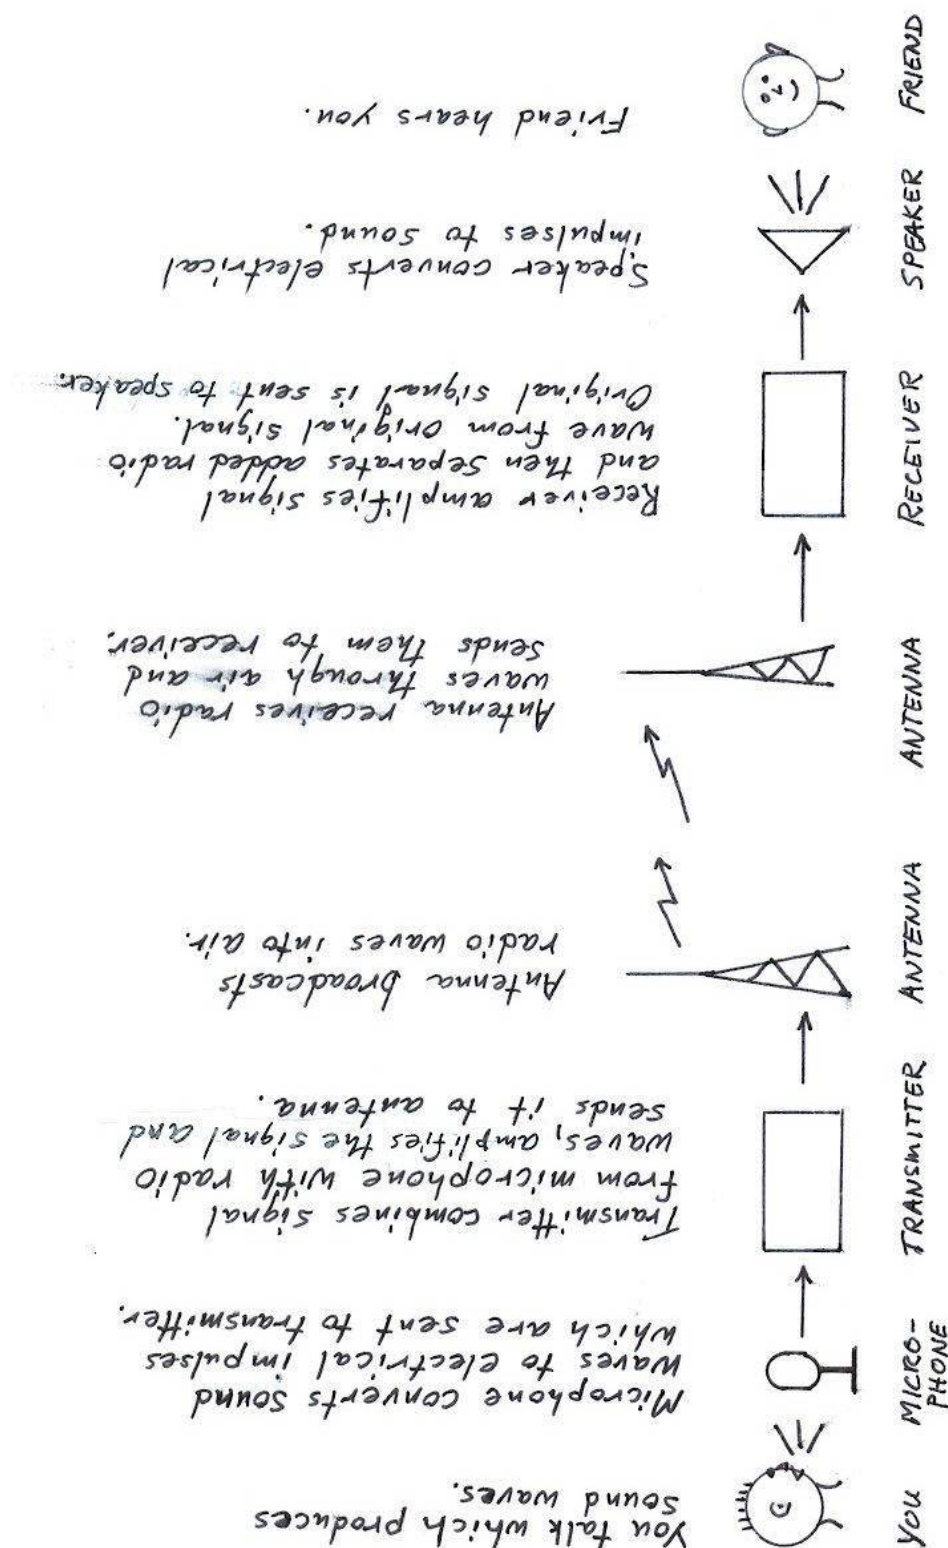 YOU
MICRO-
PHONE
TRANSMITTER
ANTENNA
ANTENNA
RECEIVER
SPEAKER
FRIEND
You talk which produces
sound waves.
Microphone converts sound
waves to electrical impulses
which are sent to transmitter.
Transmitter combines signal
from microphone with radio
waves, amplifies the signal and
sends it to antenna.
Antenna broadcasts
radio waves into air.
Antenna receives radio
waves through air and
sends them to receiver.
Receiver amplifies signal
and then separates added radio
wave from original signal.
Original signal is sent to speaker.
Speaker converts electrical
impulses to sound.
Friend hears you.